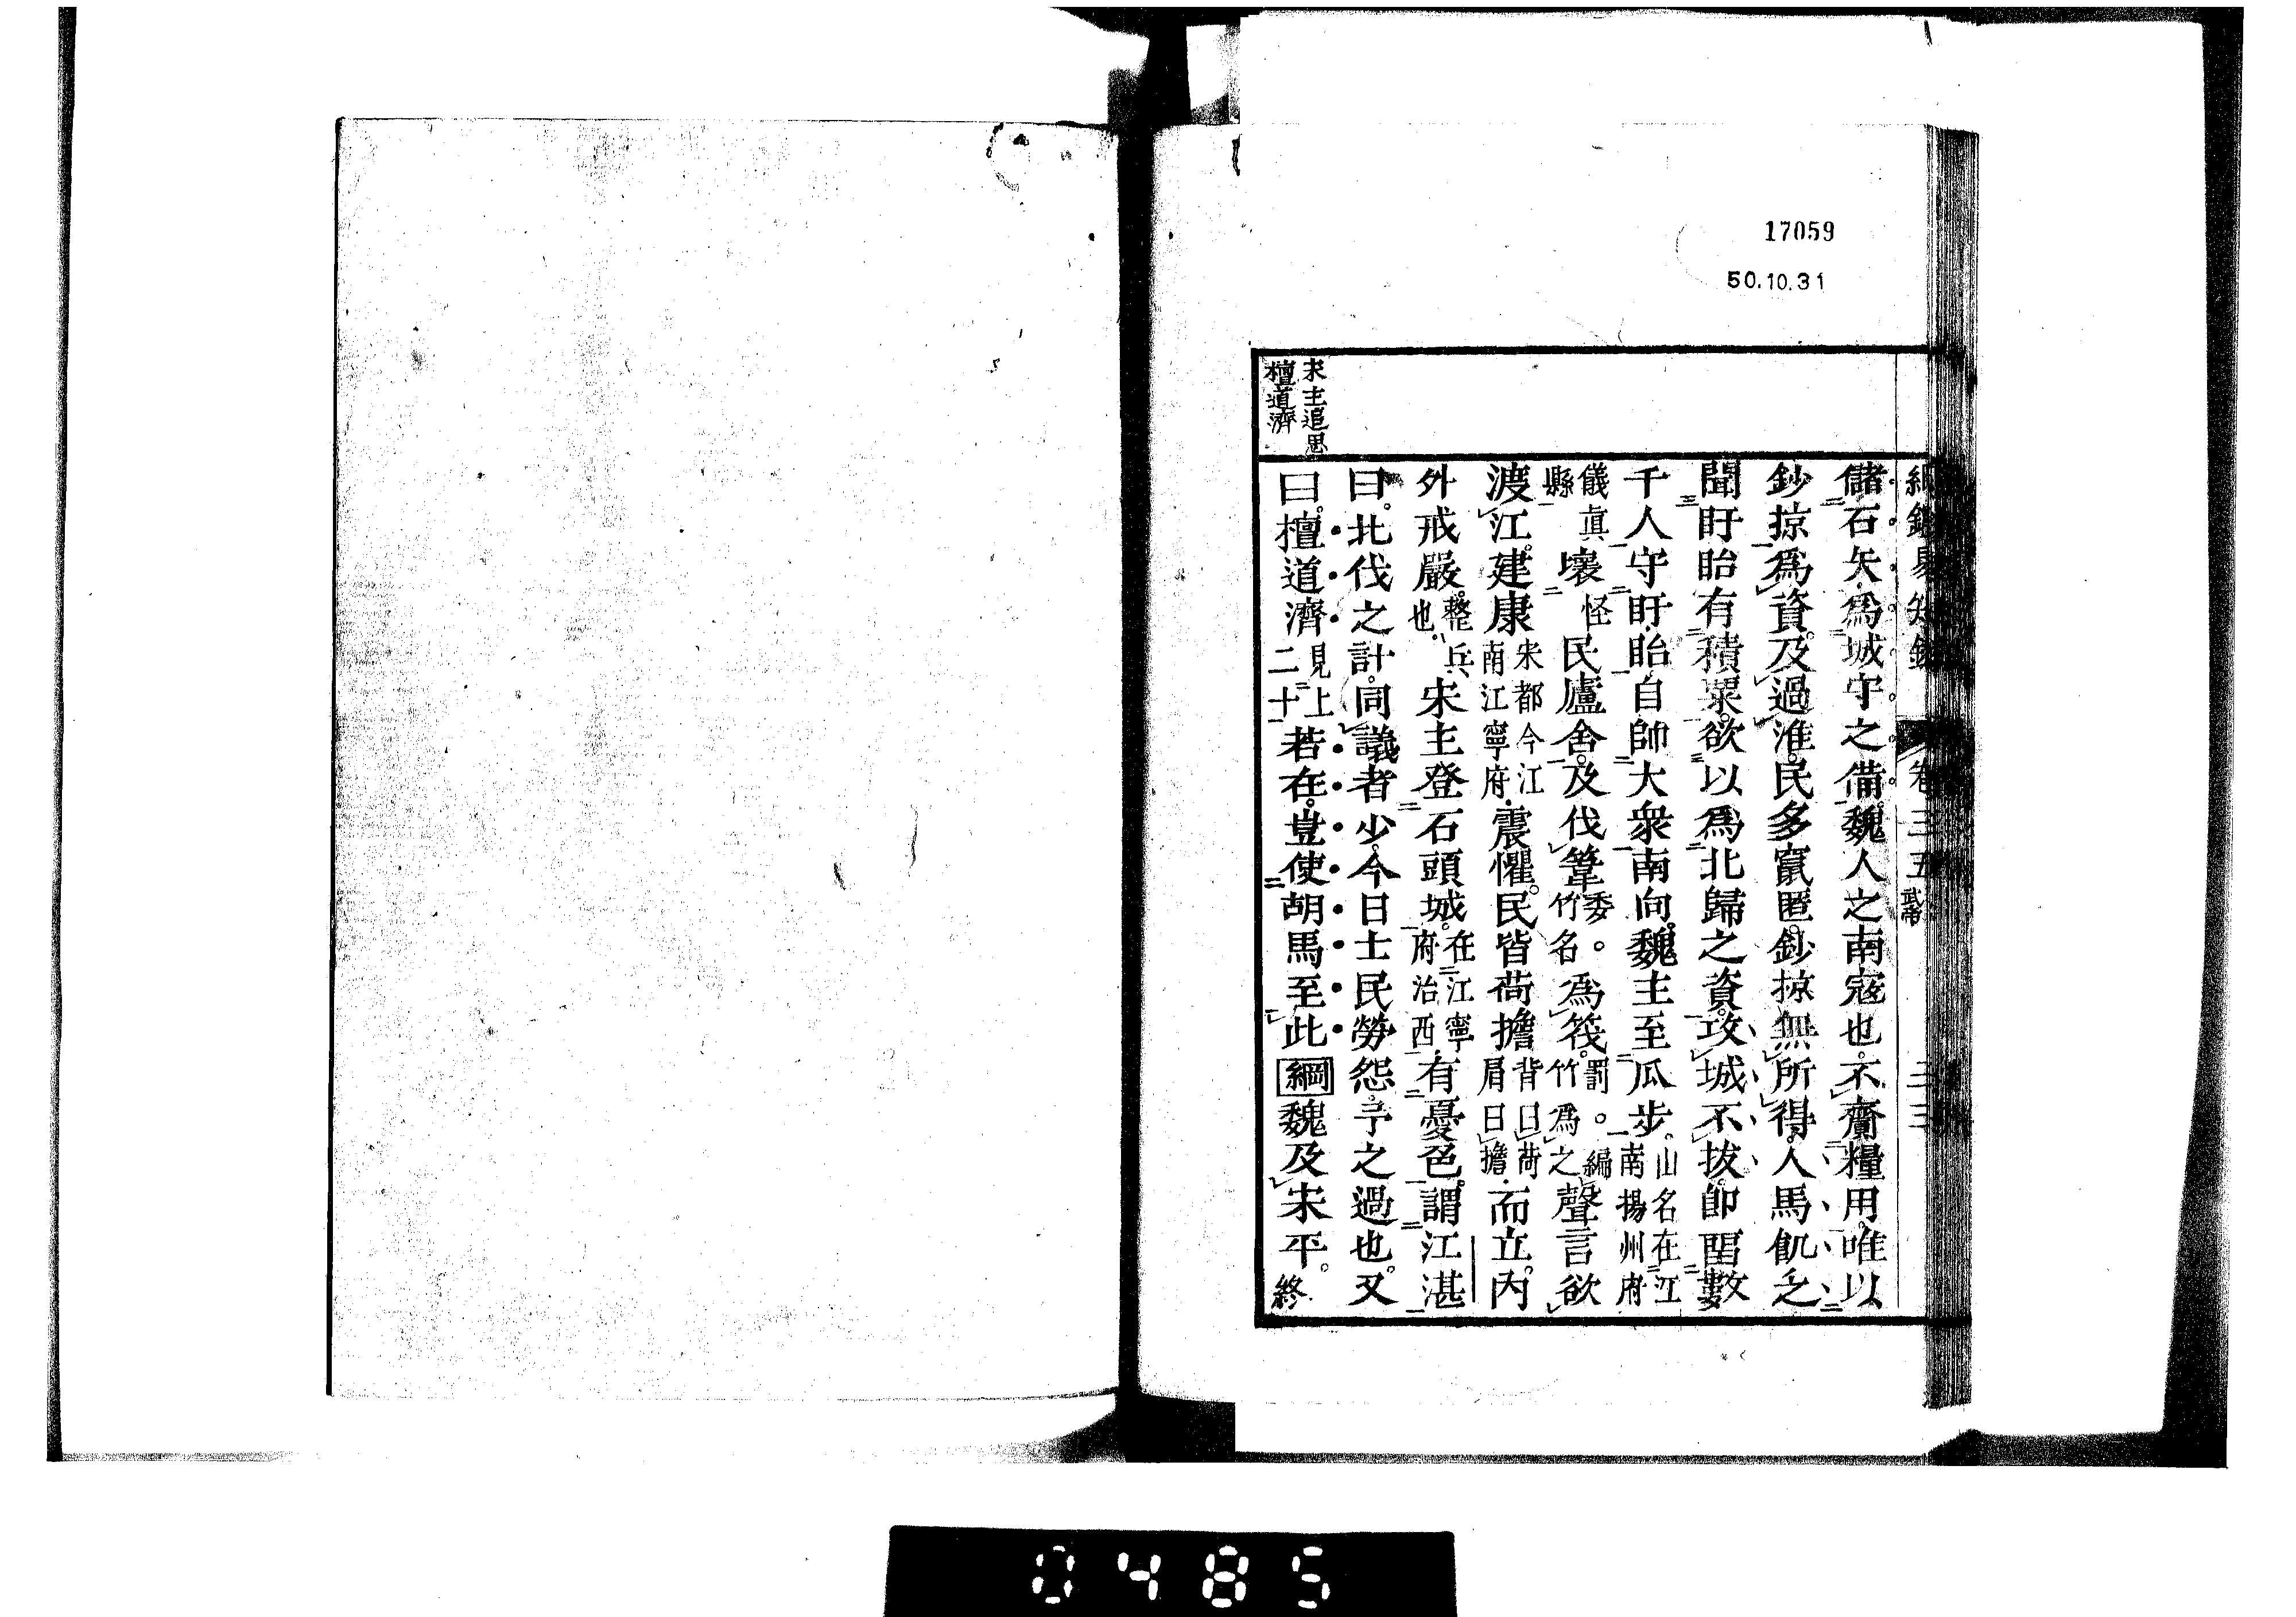 17059
50.10.31
綱鑑易知錄 卷三五 武帝 三三
儲石矢爲城守之備。魏人之南寇也。不齎糧用。唯以
鈔掠爲資。及過淮。民多竄匿。鈔掠無所得。人馬飢乏。
聞盱眙有積粟。欲以爲北歸之資。攻城不拔。卽留數
千人守盱眙。自帥大衆南向。魏主至瓜步。山名在江南揚州府
儀眞縣壞怪民廬舍。及伐葦委。竹名。爲筏。罰。編竹爲之聲言欲
渡江。建康宋都今江南江寧府震懼。民皆荷擔背曰荷肩曰擔而立。內
外戒嚴。整兵也。宋主登石頭城。在江寧府治西有憂色。謂江湛
曰。北伐之計。同議者少。今日士民勞怨。予之過也。又
曰。檀道濟見上二十若在。豈使胡馬至此綱魏及宋平。終
宋主追思
檀道濟
0485